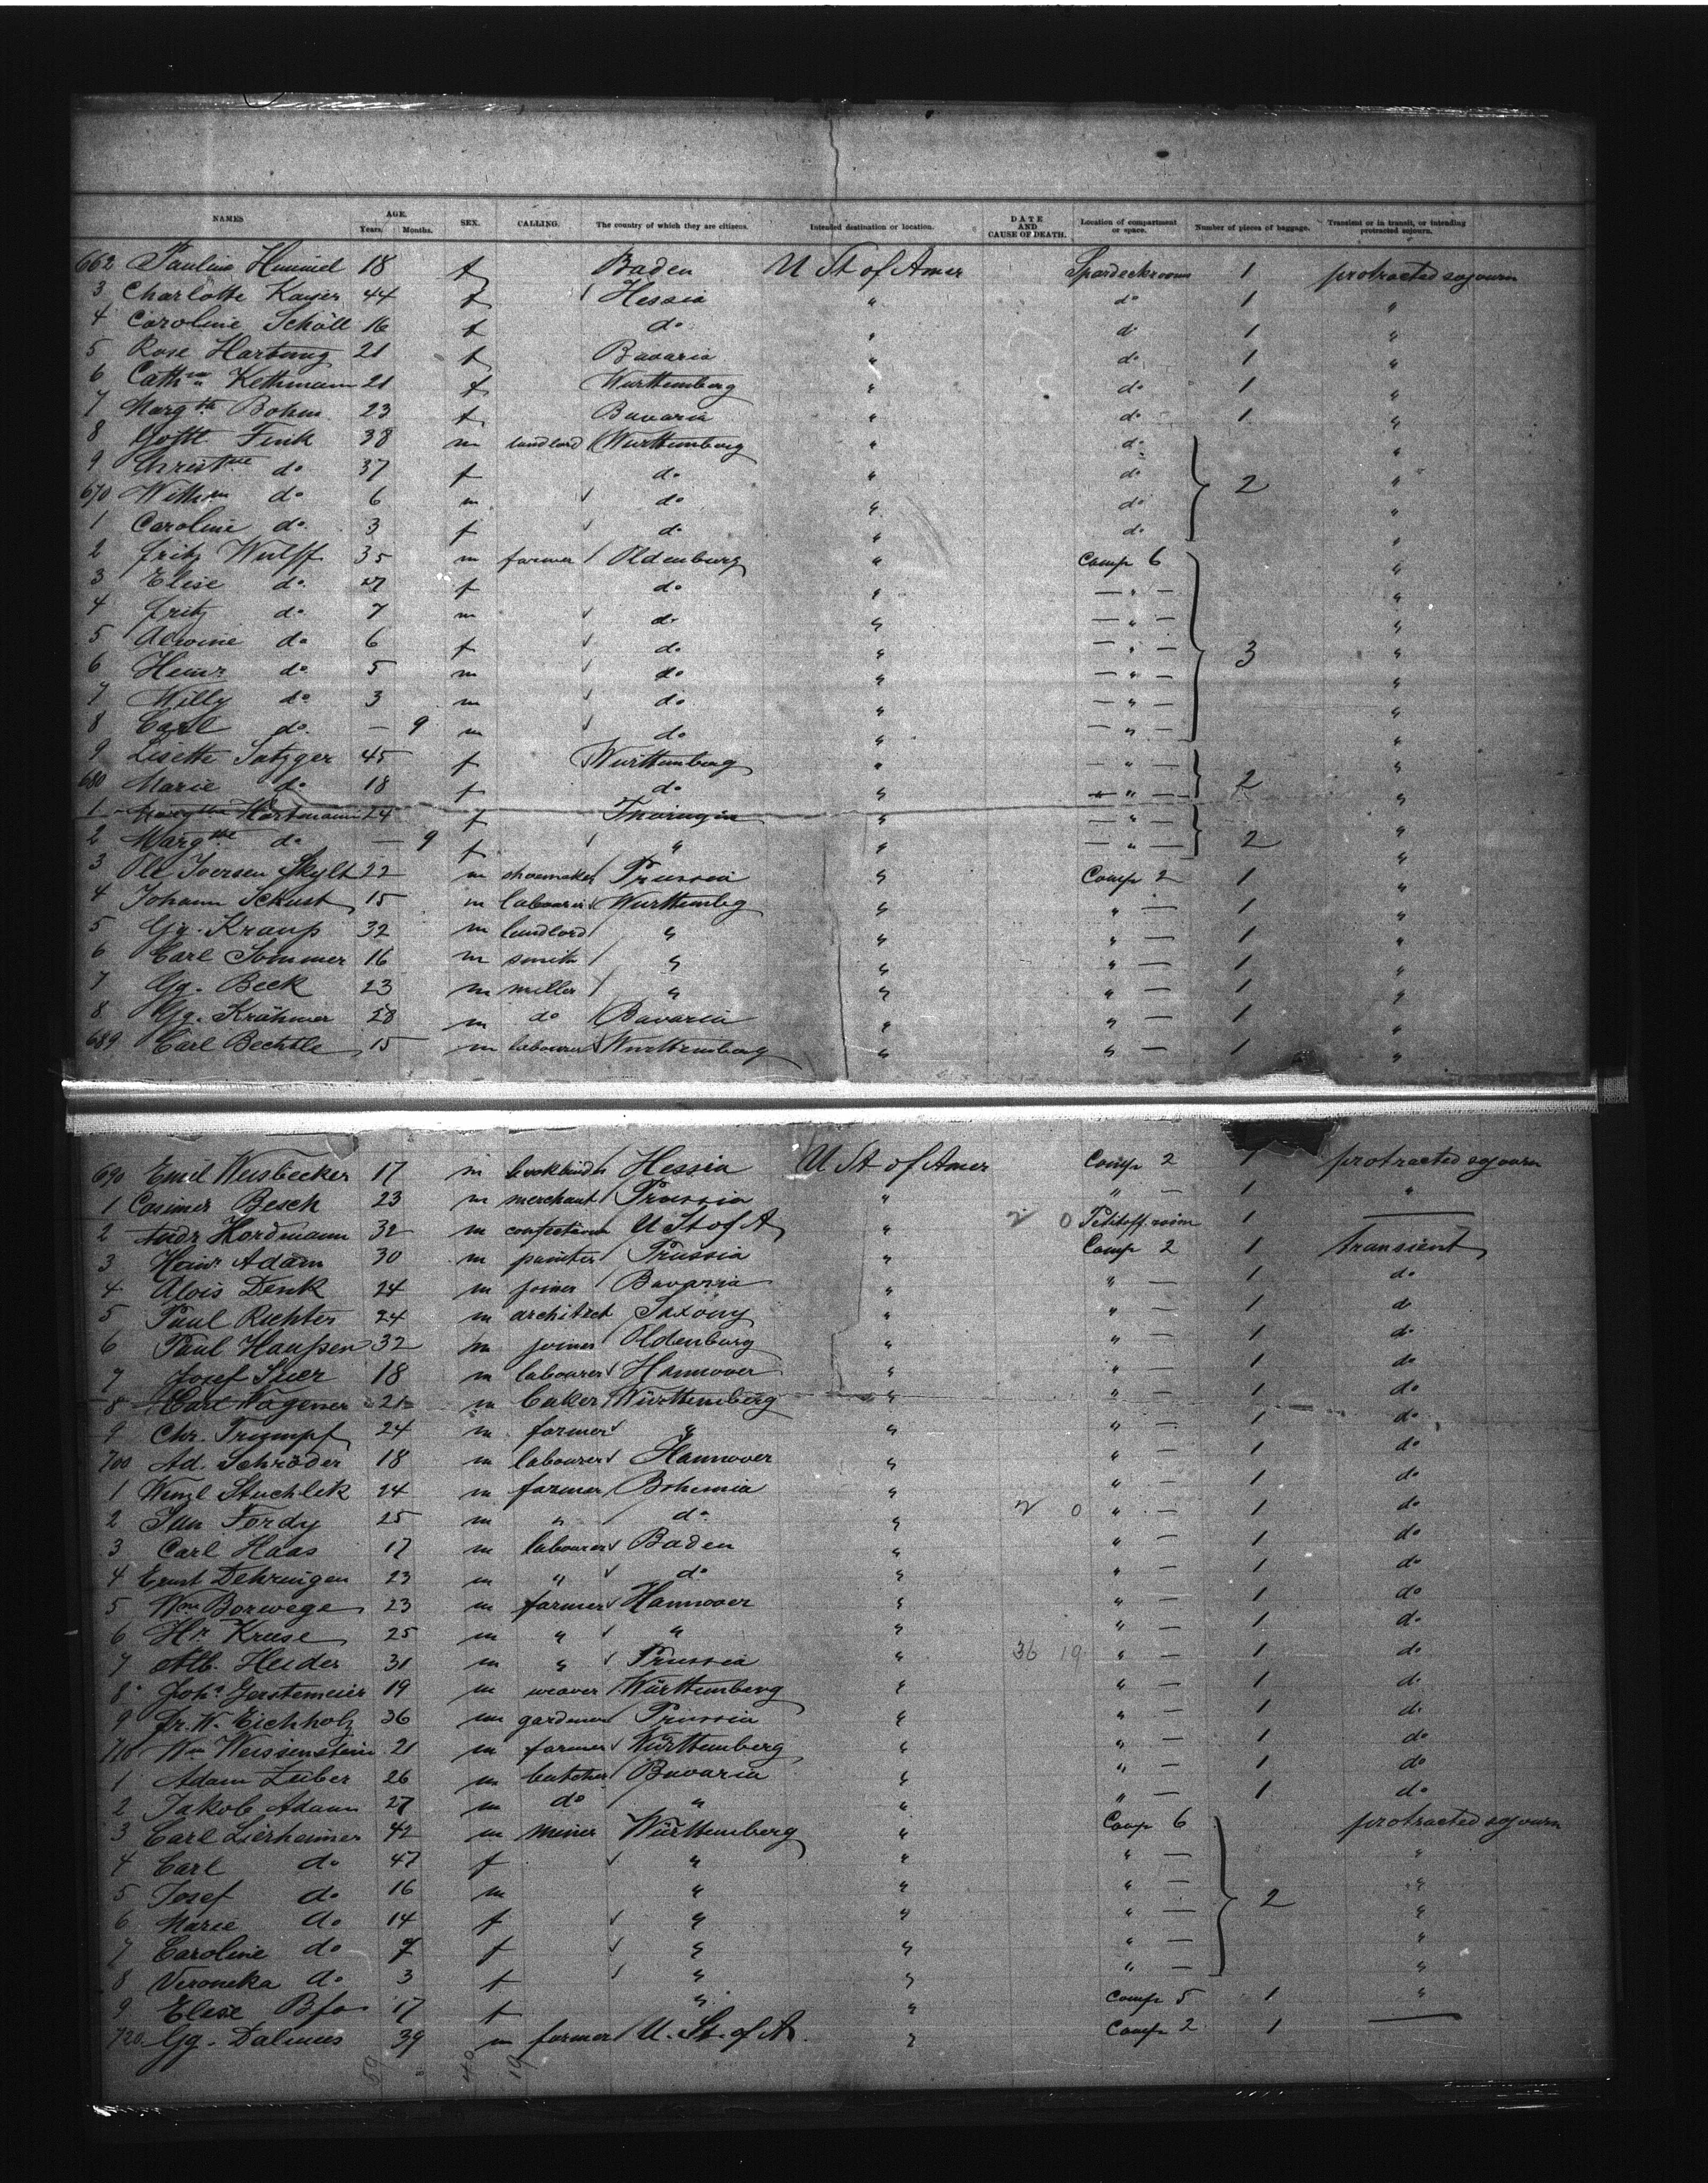 NAMES AGE. Years. Months. SEX. CALLING. The country of which they are citizens. Intended destination or location. DATE AND CAUSE OF DEATH. Location of compartment or space. Number of pieces of baggage. Transient or in transit, or intending protracted sojourn.
662 Pauline Hummel 18 f Baden U St of Amer Spardeckroom 1 protracted sojourn
3 Charlotte Kayser 44 f / Hessia " do 1 "
4 Caroline Schöll 16 f do " do 1 "
5 Rose Hartung 21 f Bavaria " do 1 "
6 Cath Kethmann 21 f Württemberg " do 1 "
7 Margth Bohm 23 f Bavaria " do 1 "
8 Gottl. Fink 38 m landlord / Württemberg " do "
9 Christne do 37 f do " do 2 "
670 Wilhm do 6 m ✓ do " do "
1 Caroline do 3 f ✓ do " do "
2 Fritz Wulff 35 m farmer / Oldenburg " Comp 6 "
3 Elise do 27 f do " — " — "
4 Fritz do 7 m ✓ do " — " — "
5 Alwine do 6 f ✓ do " — " — 3 "
6 Heinr do 5 m ✓ do " — " — "
7 Willy do 3 m ✓ do " — " — "
8 Carl do — 9 m ✓ do " — " — "
9 Lisette Satzger 45 f Württemberg " — " — "
680 Marie do 18 f do " — " — 2 "
1 Margthe Hartmann 24 f Thüringia " — " — "
2 Margthe do — 9 f / " " — " — 2 "
3 Ole Iversen Skylt 22 m shoemaker / Prussia " Comp 2 1 "
4 Johann Schust 15 m labourer ✓ Württembg " " — 1 "
5 Gg. Krauss 32 m landlord / " " " — 1 "
6 Carl Sommer 16 m smith / " " " — 1 "
7 Gg. Beck 23 m miller / " " " — 1 "
8 Gg. Krähmer 28 m do / Bavaria " " — 1 "
689 Carl Bechtle 15 m labourer ✓ Württemberg " " — 1 "
690 Emil Weisbecker 17 m bookbinder / Hessia U St of Amer Comp 2 1 protracted sojourn
1 Casimir Besch 23 m merchant / Prussia " " — 1 "
2 Andr Hordmann 32 m confectioner / U St of A " 2 0 1 —
3 Heinr Adam 30 m painter / Prussia " Comp 2 1 transient
4 Alois Denk 24 m joiner / Bavaria " " — 1 do
5 Paul Richter 24 m architect Saxony " " — 1 do
6 Paul Haussen 32 m joiner / Oldenburg " " — 1 do
7 Josef Stier 18 m labourer ✓ Hannover " " — 1 do
8 Carl Wagener 21 m baker / Württemberg " " — 1 do
9 Chr. Trumpf 24 m farmer ✓ " " " — 1 do
700 Ad. Schröder 18 m labourer ✓ Hannover " " — 1 do
1 Wenzl Stuchlik 24 m farmer / Bohemia " " — 1 do
2 Jan Fordy 25 m " / do " 2 0 " — 1 do
3 Carl Haas 17 m labourer ✓ Baden " " — 1 do
4 Ernst Dehringen 23 m " ✓ do " " — 1 do
5 Wm Borwege 23 m farmer ✓ Hannover " " — 1 do
6 Hr Kruse 25 m " ✓ " " " — 1 do
7 Alb. Heider 31 m " ✓ Prussia " 36 19 " — 1 do
8 Joh. Gerstemeier 19 m weaver / Württemberg " " — 1 do
9 Fr. W. Eichholz 36 m gardener / Prussia " " — 1 do
710 Wm Weissenstein 21 m farmer ✓ Württemberg " " — 1 do
1 Adam Zuber 26 m butcher / Bavaria " " — 1 do
2 Jakob Adam 27 m do / " " " — 1 do
3 Carl Lierheimer 42 m miner / Württemberg " Comp 6 protracted sojourn
4 Carl do 47 f ✓ " " " — "
5 Josef do 16 m " " " — "
6 Marie do 14 f ✓ " " " — 2 "
7 Caroline do 7 f ✓ " " " — "
8 Veronika do 3 f ✓ " " " — "
9 Elise 17 f " " Comp 5 1 "
720 Gg. Dalmus 39 m farmer / U. St. of A. " Comp 2 1 —
59 40 19